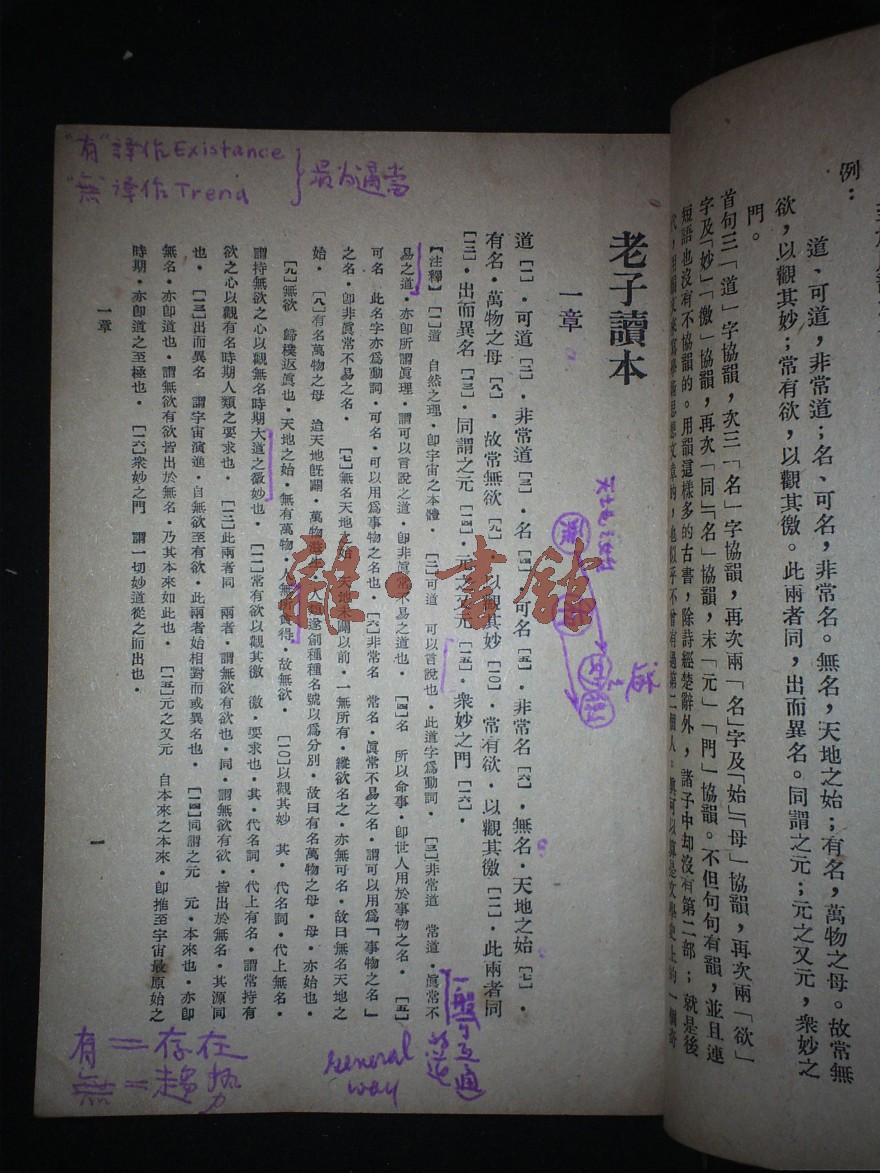 例：
道、可道，非常道；名、可名，非常名。無名，天地之始；有名，萬物之母。故常無
欲，以觀其妙；常有欲，以觀其徼。此兩者同，出而異名。同謂之元；元之又元，衆妙之
門。
首句三「道」字協韻，次三「名」字協韻，再次兩「名」字及「始」「母」協韻，再次兩「欲」
字及「妙」「徼」協韻，再次「同」「名」協韻，末「元」「門」協韻。不但句句有韻，並且連
短語也沒有不協韻的。用韻這樣多的古書，除詩經楚辭外，諸子中却沒有第二部；就是後
老子讀本
一章
道〔一〕・可道〔二〕・非常道〔三〕・名〔四〕・可名〔五〕・非常名〔六〕・無名・天地之始〔七〕・
有名・萬物之母〔八〕・故常無欲〔九〕・以觀其妙〔一〇〕・常有欲・以觀其徼〔一一〕・此兩者同
〔一二〕・出而異名〔一三〕・同謂之元〔一四〕・元之又元〔一五〕・衆妙之門〔一六〕・
【注釋】〔一〕道　自然之理・卽宇宙之本體・〔二〕可道　可以言說也・此道字爲動詞・〔三〕非常道　常道・眞常不
易之道・亦卽所謂眞理・謂可以言說之道・卽非眞常不易之道也・〔四〕名　所以命事・卽世人用於事物之名・〔五〕
可名　此名字亦爲動詞・可名・可以用爲事物之名也・〔六〕非常名　常名・眞常不易之名・謂可以用爲「事物之名」
之名・卽非眞常不易之名・〔七〕無名天地之始　天地未闢以前・一無所有・縱欲名之・亦無可名・故曰無名天地之
始・〔八〕有名萬物之母　迨天地旣闢・萬物滋生・人類遂創種種名號以爲分別・故曰有名萬物之母・母・亦始也・
〔九〕無欲　歸樸返眞也・天地之始・無有萬物・人無所貪得・故無欲・〔一〇〕以觀其妙　其・代名詞・代上無名・
謂持無欲之心以觀無名時期大道之微妙也・〔一一〕常有欲以觀其徼　徼・要求也・其・代名詞・代上有名・謂常持有
欲之心以觀有名時期人類之要求也・〔一二〕此兩者同　兩者・謂無欲有欲也・同・謂無欲有欲・皆出於無名・其源同
也・〔一三〕出而異名　謂宇宙演進・自無欲至有欲・此兩者始相對而或異名也・〔一四〕同謂之元　元・本來也・亦卽
無名・亦卽道也・謂無欲有欲皆出於無名・乃其本來如此也・〔一五〕元之又元　自本來之本來・卽推至宇宙最原始之
時期・亦卽道之至極也・〔一六〕衆妙之門　謂一切妙道從之而出也・
一章
一
"有"譯作 Existance
"無"譯作 Trend
最为適當
無
一般
General
way
有＝存在
無＝趋势
雜・書館